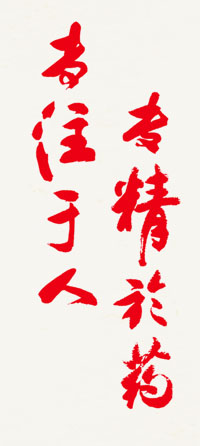 专精於药
专注于人